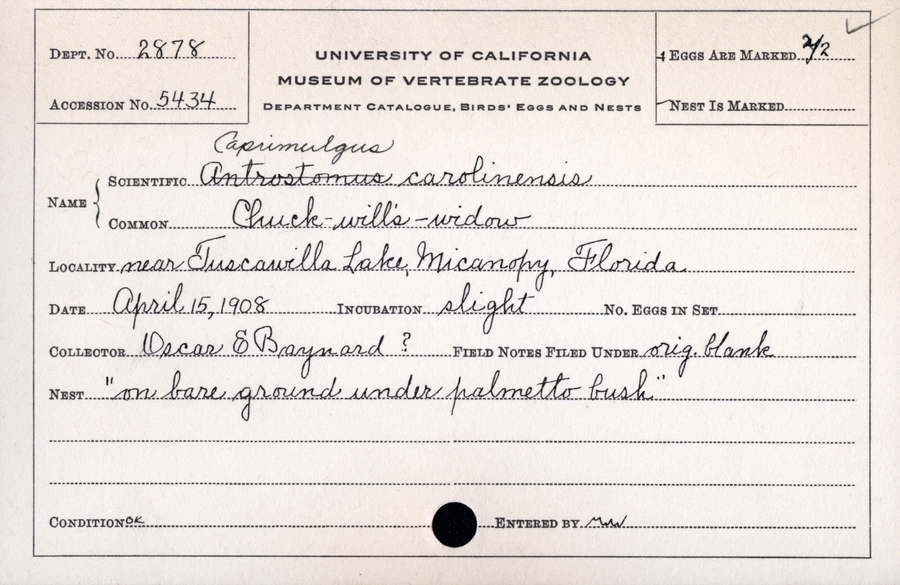 Dept. No. 2878
Accession No. 5434
UNIVERSITY OF CALIFORNIA
MUSEUM OF VERTEBRATE ZOOLOGY
Department Catalogue, Birds' Eggs and Nests
Eggs Are Marked 2/2
Nest Is Marked
Caprimulgus
Name
Scientific Antrostomus carolinensis
Common Chuck-will's-widow
Locality near Tuscawilla Lake, Micanopy, Florida
Date April 15, 1908 Incubation slight No. Eggs in Set
Collector Oscar E Baynard ? Field Notes Filed Under orig. blank
Nest "on bare ground under palmetto bush"
Condition OK Entered by